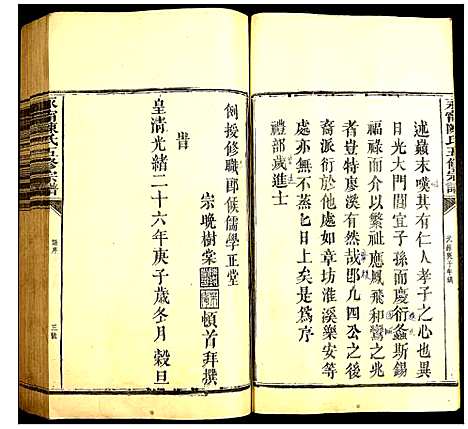 永甯陳氏五修宗譜
述蟲末嘆其有仁人孝子之心也異
日光大門閭宜子孫而慶衍螽斯錫
福祿而介以繁祉應鳳飛和鸞之兆
者豈特廖溪有然哉即九四公之後
裔派衍於他處如章坊淮溪樂安等
處亦無不蒸蒸日上矣是爲序
禮部歲進士
例授修職郎候儒學正堂
宗晩樹棠 頓首拜撰
旹
皇清光緒二十六年庚子歲冬月 穀旦
永甯陳氏五修宗譜
譜序
三